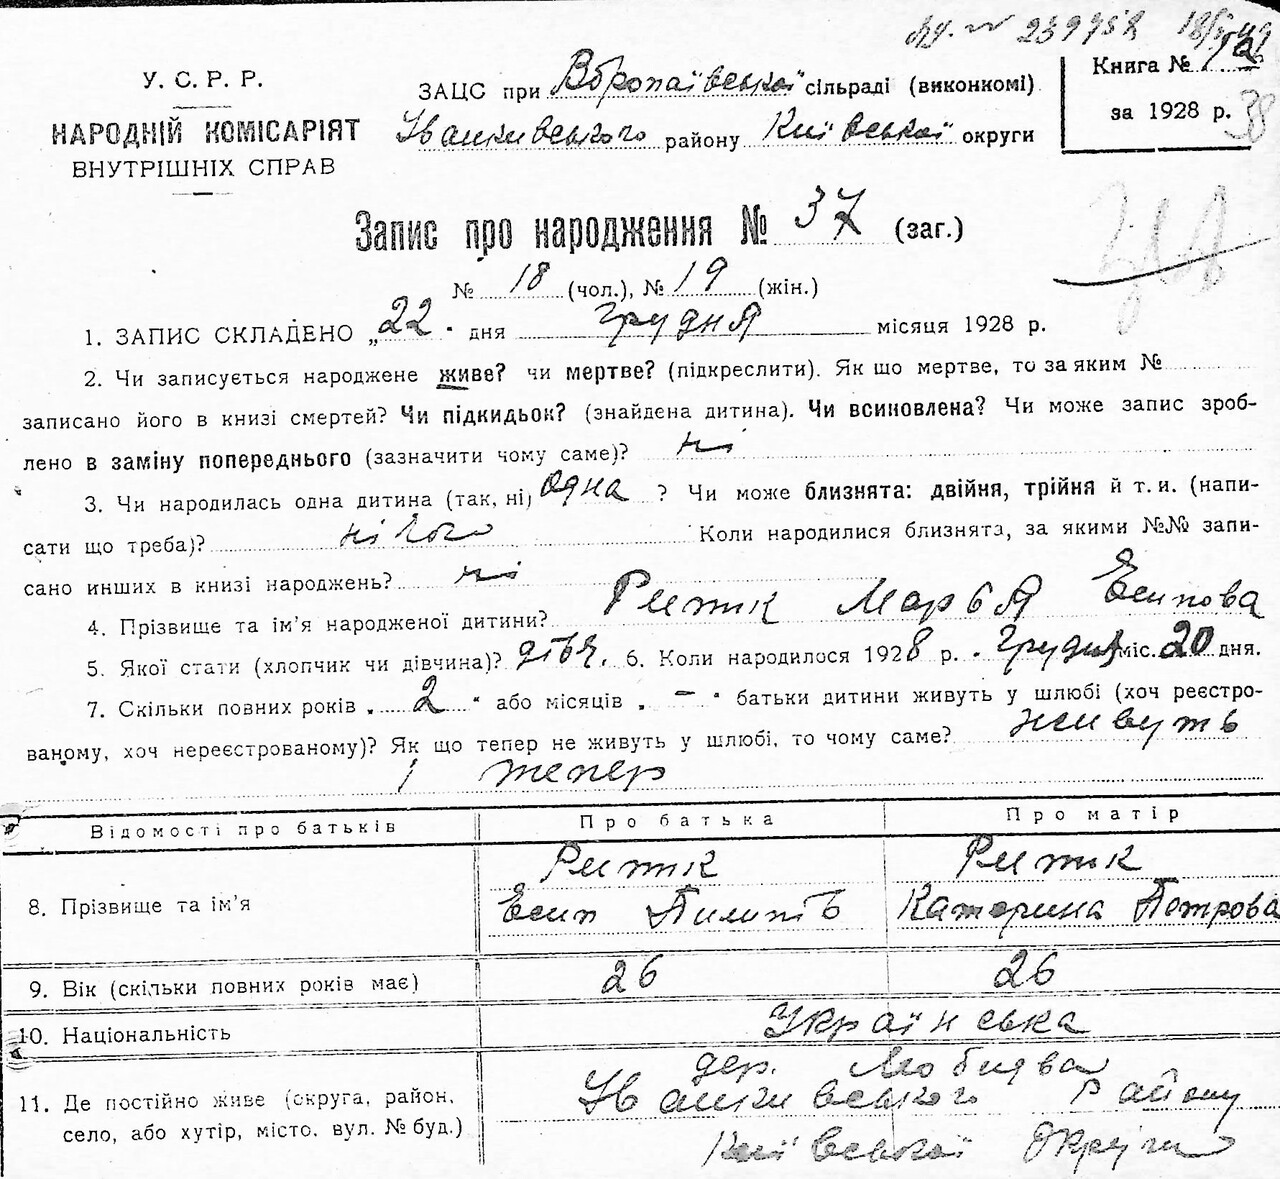 У. С. Р. Р.
НАРОДНІЙ КОМІСАРІЯТ
ВНУТРІШНІХ СПРАВ
239952
ЗАЦС при Воропаївської сільраді (виконкомі)
Іванківського району Київської округи
Книга №
за 1928 р. 38
Запис про народження № 37 (заг.)
№ 18 (чол.), № 19 (жін.)
1. ЗАПИС СКЛАДЕНО „22" дня грудня місяця 1928 р.
2. Чи записується народжене живе? чи мертве? (підкреслити). Як що мертве, то за яким №
записано його в книзі смертей? Чи підкидьок? (знайдена дитина). Чи всиновлена? Чи може запис зроб-
лено в заміну попереднього (зазначити чому саме)? ні
3. Чи народилась одна дитина (так, ні) одна ? Чи може близнята: двійня, трійня й т. и. (напи-
сати що треба)? нікого Коли народилися близнята, за якими №№ запи-
сано инших в книзі народжень? ні
4. Прізвище та ім'я народженої дитини? Ритік Марья Есипова
5. Якої стати (хлопчик чи дівчина)? дівч. 6. Коли народилося 1928 р. грудня міс. 20 дня.
7. Скільки повних років „ 2 " або місяців „ — " батьки дитини живуть у шлюбі (хоч реєстро-
ваному, хоч нереєстрованому)? Як що тепер не живуть у шлюбі, то чому саме? живуть
і тепер
Відомості про батьків Про батька Про матір
8. Прізвище та ім'я Ритік Есип Пилипів Ритік Катерина Петрова
9. Вік (скільки повних років має) 26 26
10. Національність Українська
11. Де постійно живе (округа, район,
село, або хутір, місто, вул. № буд.)
дер.
Іванківського Району
Київської Округи